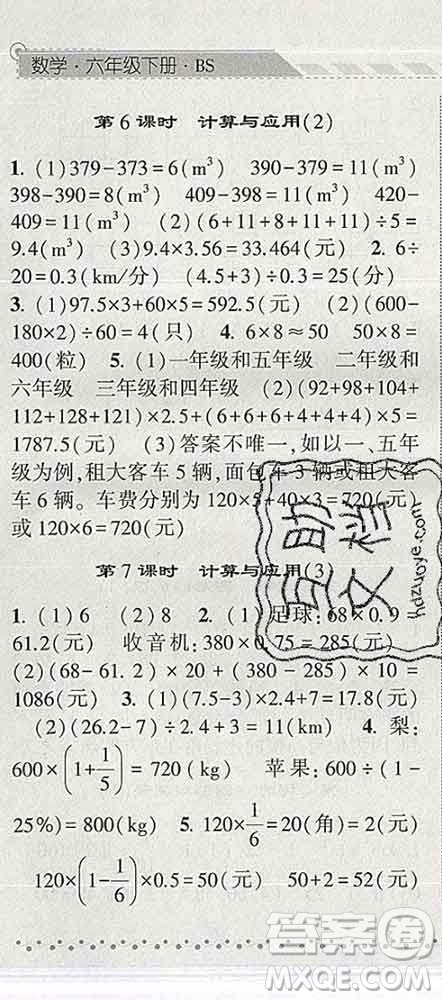 数学·六年级下册·BS
第6课时 计算与应用(2)
1. (1)379-373=6(m³) 390-379=11(m³)
398-390=8(m³) 409-398=11(m³) 420-
409=11(m³) (2)(6+11+8+11+11)÷5=
9.4(m³) (3)9.4×3.56=33.464(元) 2. 6÷
20=0.3(km/分) (4.5+3)÷0.3=25(分)
3. (1)97.5×3+60×5=592.5(元) (2)(600-
180×2)÷60=4(只) 4. 6×8≈50 50×8=
400(粒) 5. (1)一年级和五年级 二年级和
六年级 三年级和四年级 (2)(92+98+104+
112+128+121)×2.5+(6+6+4+4+4+6)×5=
1787.5(元) (3)答案不唯一,如以一、五年
级为例,租大客车5辆,面包车3辆或租大客
车6辆。车费分别为120×5+40×3=720(元)
或120×6=720(元)
第7课时 计算与应用(3)
1. (1)6 (2)8 2. (1)足球:68×0.9=
61.2(元) 收音机:380×0.75=285(元)
(2)(68-61.2)×20+(380-285)×10=
1086(元) 3. (1)(7.5-3)×2.4+7=17.8(元)
(2)(26.2-7)÷2.4+3=11(km) 4. 梨:
600×(1+1/5)=720(kg) 苹果:600÷(1-
25%)=800(kg) 5. 120×1/6=20(角)=2(元)
120×(1-1/6)×0.5=50(元) 50+2=52(元)
互助文档
hdzuoye.com
答案圈
MXQE.COM